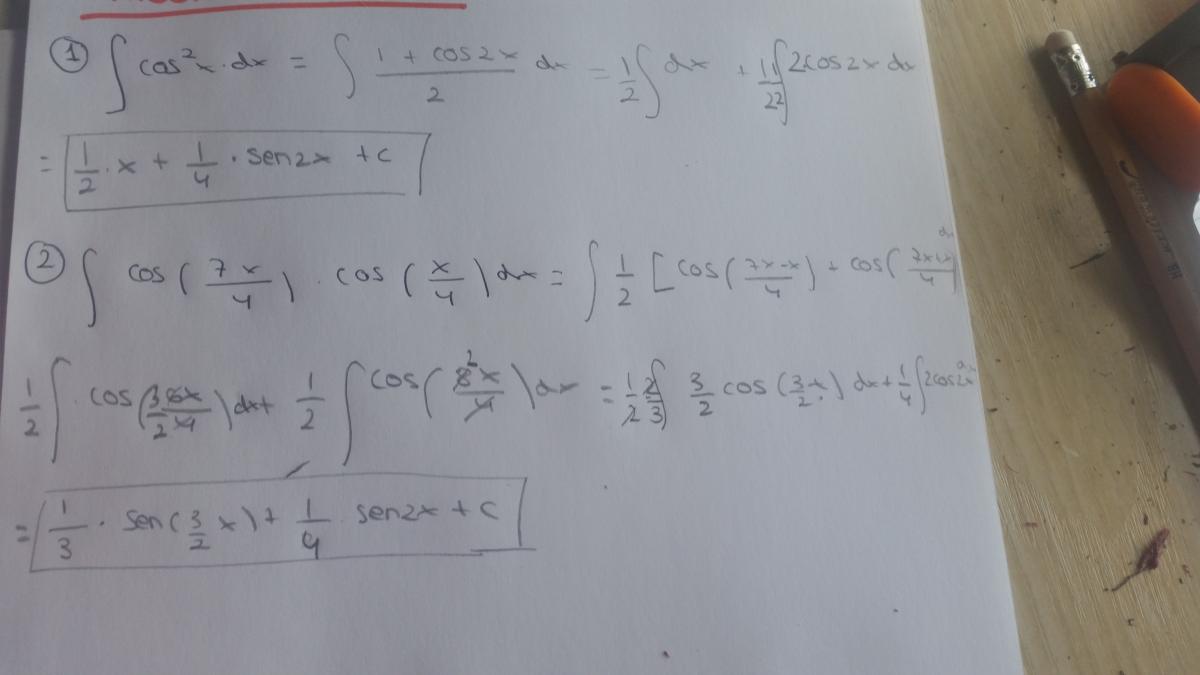 ① ∫ cos²x · dx = ∫ (1 + cos2x)/2 dx = 1/2 ∫ dx + 1/2 1/2 ∫ 2cos2x dx
= 1/2 · x + 1/4 · sen2x + c
② ∫ cos (7x/4) · cos (x/4) dx = ∫ 1/2 [cos (7x-x/4) + cos (7x+x/4) dx
1/2 ∫ cos (3 6x/2 4) dx + 1/2 ∫ cos (2 8x/4) dx = 1/2 2/3 ∫ 3/2 cos (3/2 x) dx + 1/4 ∫ 2cos2x dx
= 1/3 · sen (3/2 x) + 1/4 sen2x + c